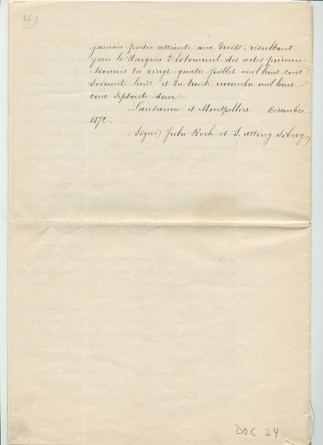 4)
jamais porter atteinte aux droits, résultant
pour le Marquis d'Estourmel des actes priemen-
tionnés du vingt quatre juillet mil huit cent
soixante huit et du trente novembre mil huit
cent septante deux.
Lausanne et Montpellier Décembre
1872.
(Signé) Jules Koch et S.
DOC 24